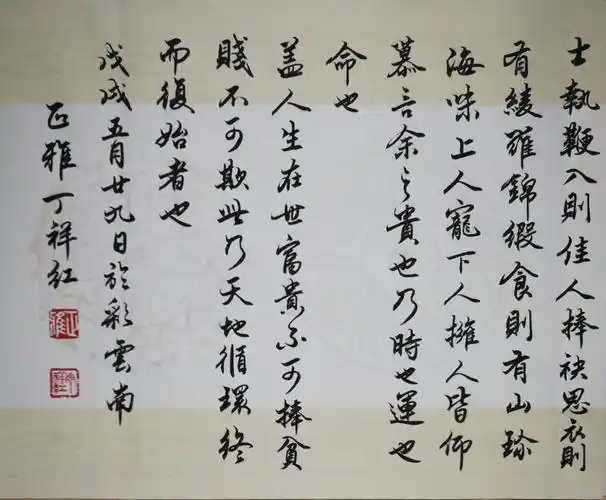 士執鞭入則佳人捧袂思衣則
有綾羅錦緞食則有山珍
海味上人寵下人擁人皆仰
慕言余之貴也乃時也運也
命也
盖人生在世富貴不可捧貧
賤不可欺此乃天地循環終
而復始者也
戊戌五月廿九日於彩雲南
正雅丁祥红
正雅